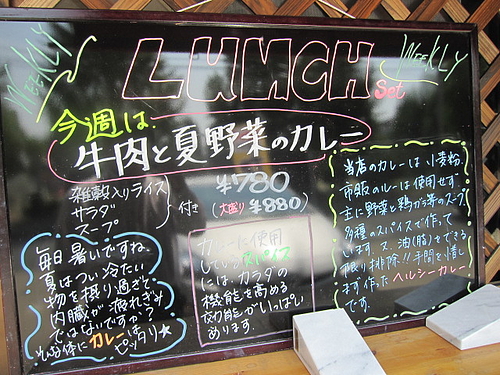 WEEKLY
LUNCH
Set
WEEKLY
今週は、
牛肉と夏野菜のカレー
雑穀入りライス
サラダ
スープ
付き
¥780
(大盛り ¥880)
毎日暑いですね。
夏はつい冷たい
物を摂り過ぎて
内臓が疲れぎみ
ではないですか?
そんな体にカレーは
ピッタリ★
カレーに使用
しているスパイス
には、カラダの
機能を高める
効能がいっぱい
あります。
当店のカレーは小麦粉
市販のルーは使用せず
主に野菜と鶏ガラのスープ
多種のスパイスで作って
います。又、油(脂)をできる
限り排除!!手間を惜し
まず作ったヘルシーカレー
です。